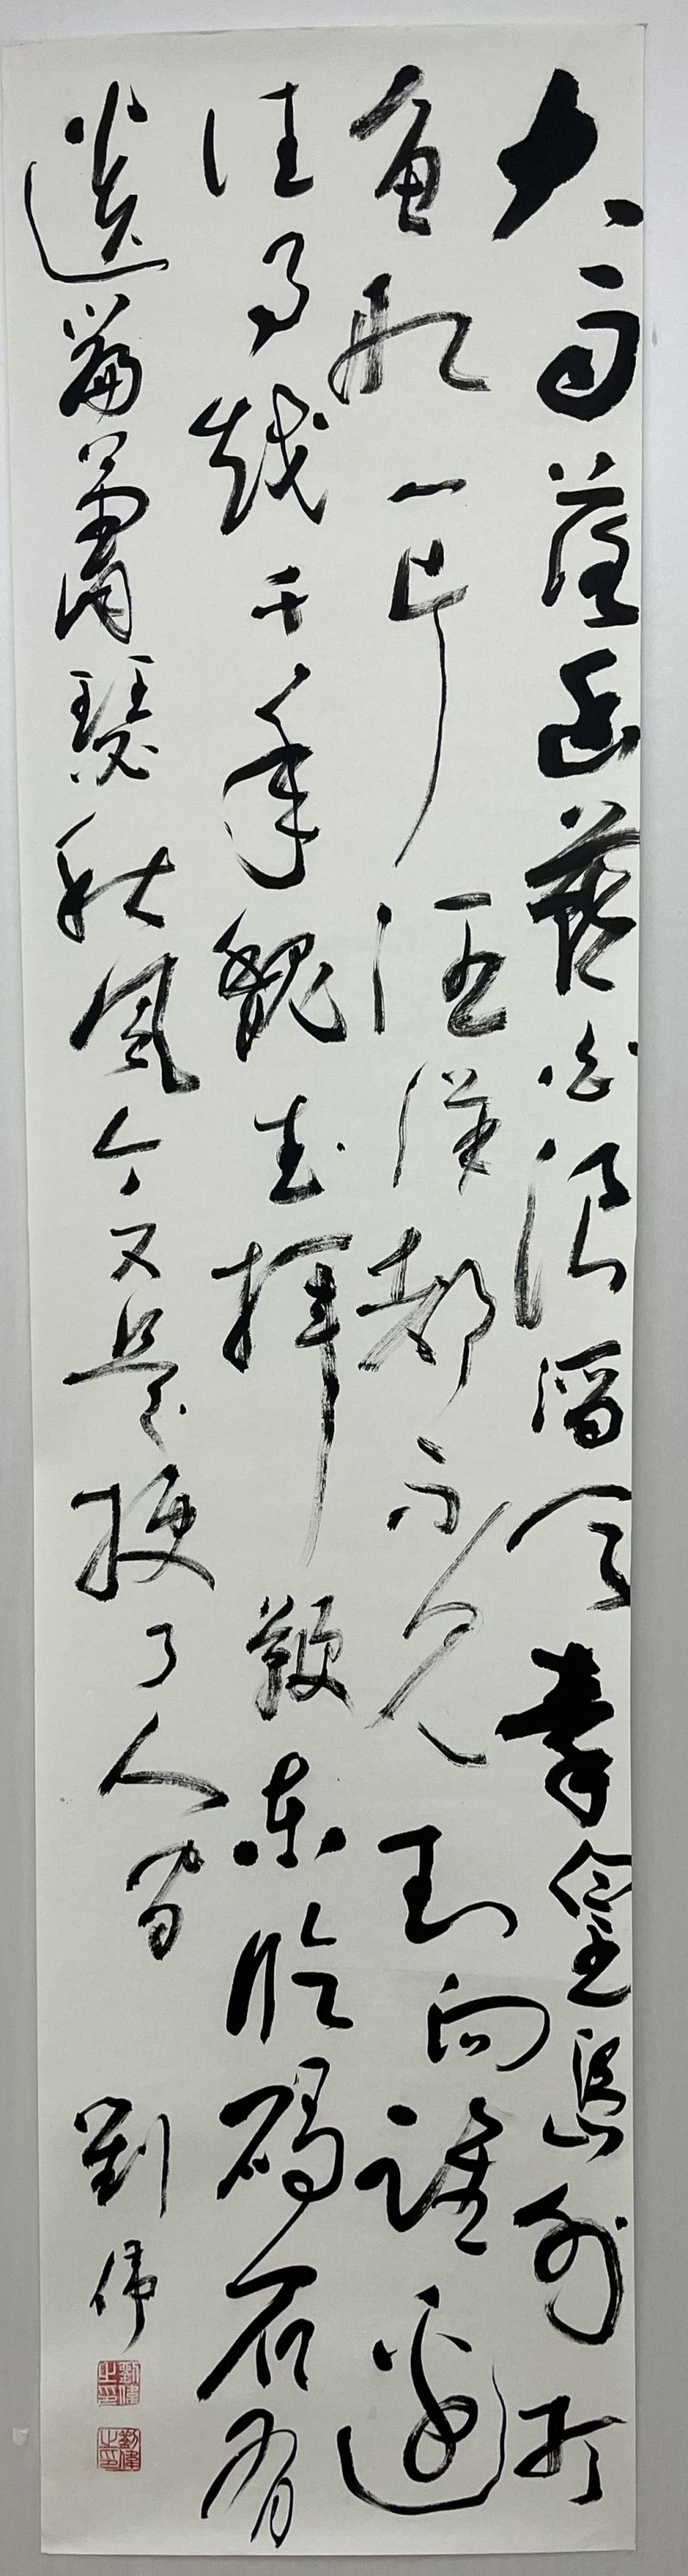 大雨落幽燕白浪滔天秦皇島外打
魚船一片汪洋都不見知向誰邊
往事越千年魏武揮鞭東臨碣石有
遺篇蕭瑟秋風今又是換了人間
劉偉
劉偉之印
劉偉之印